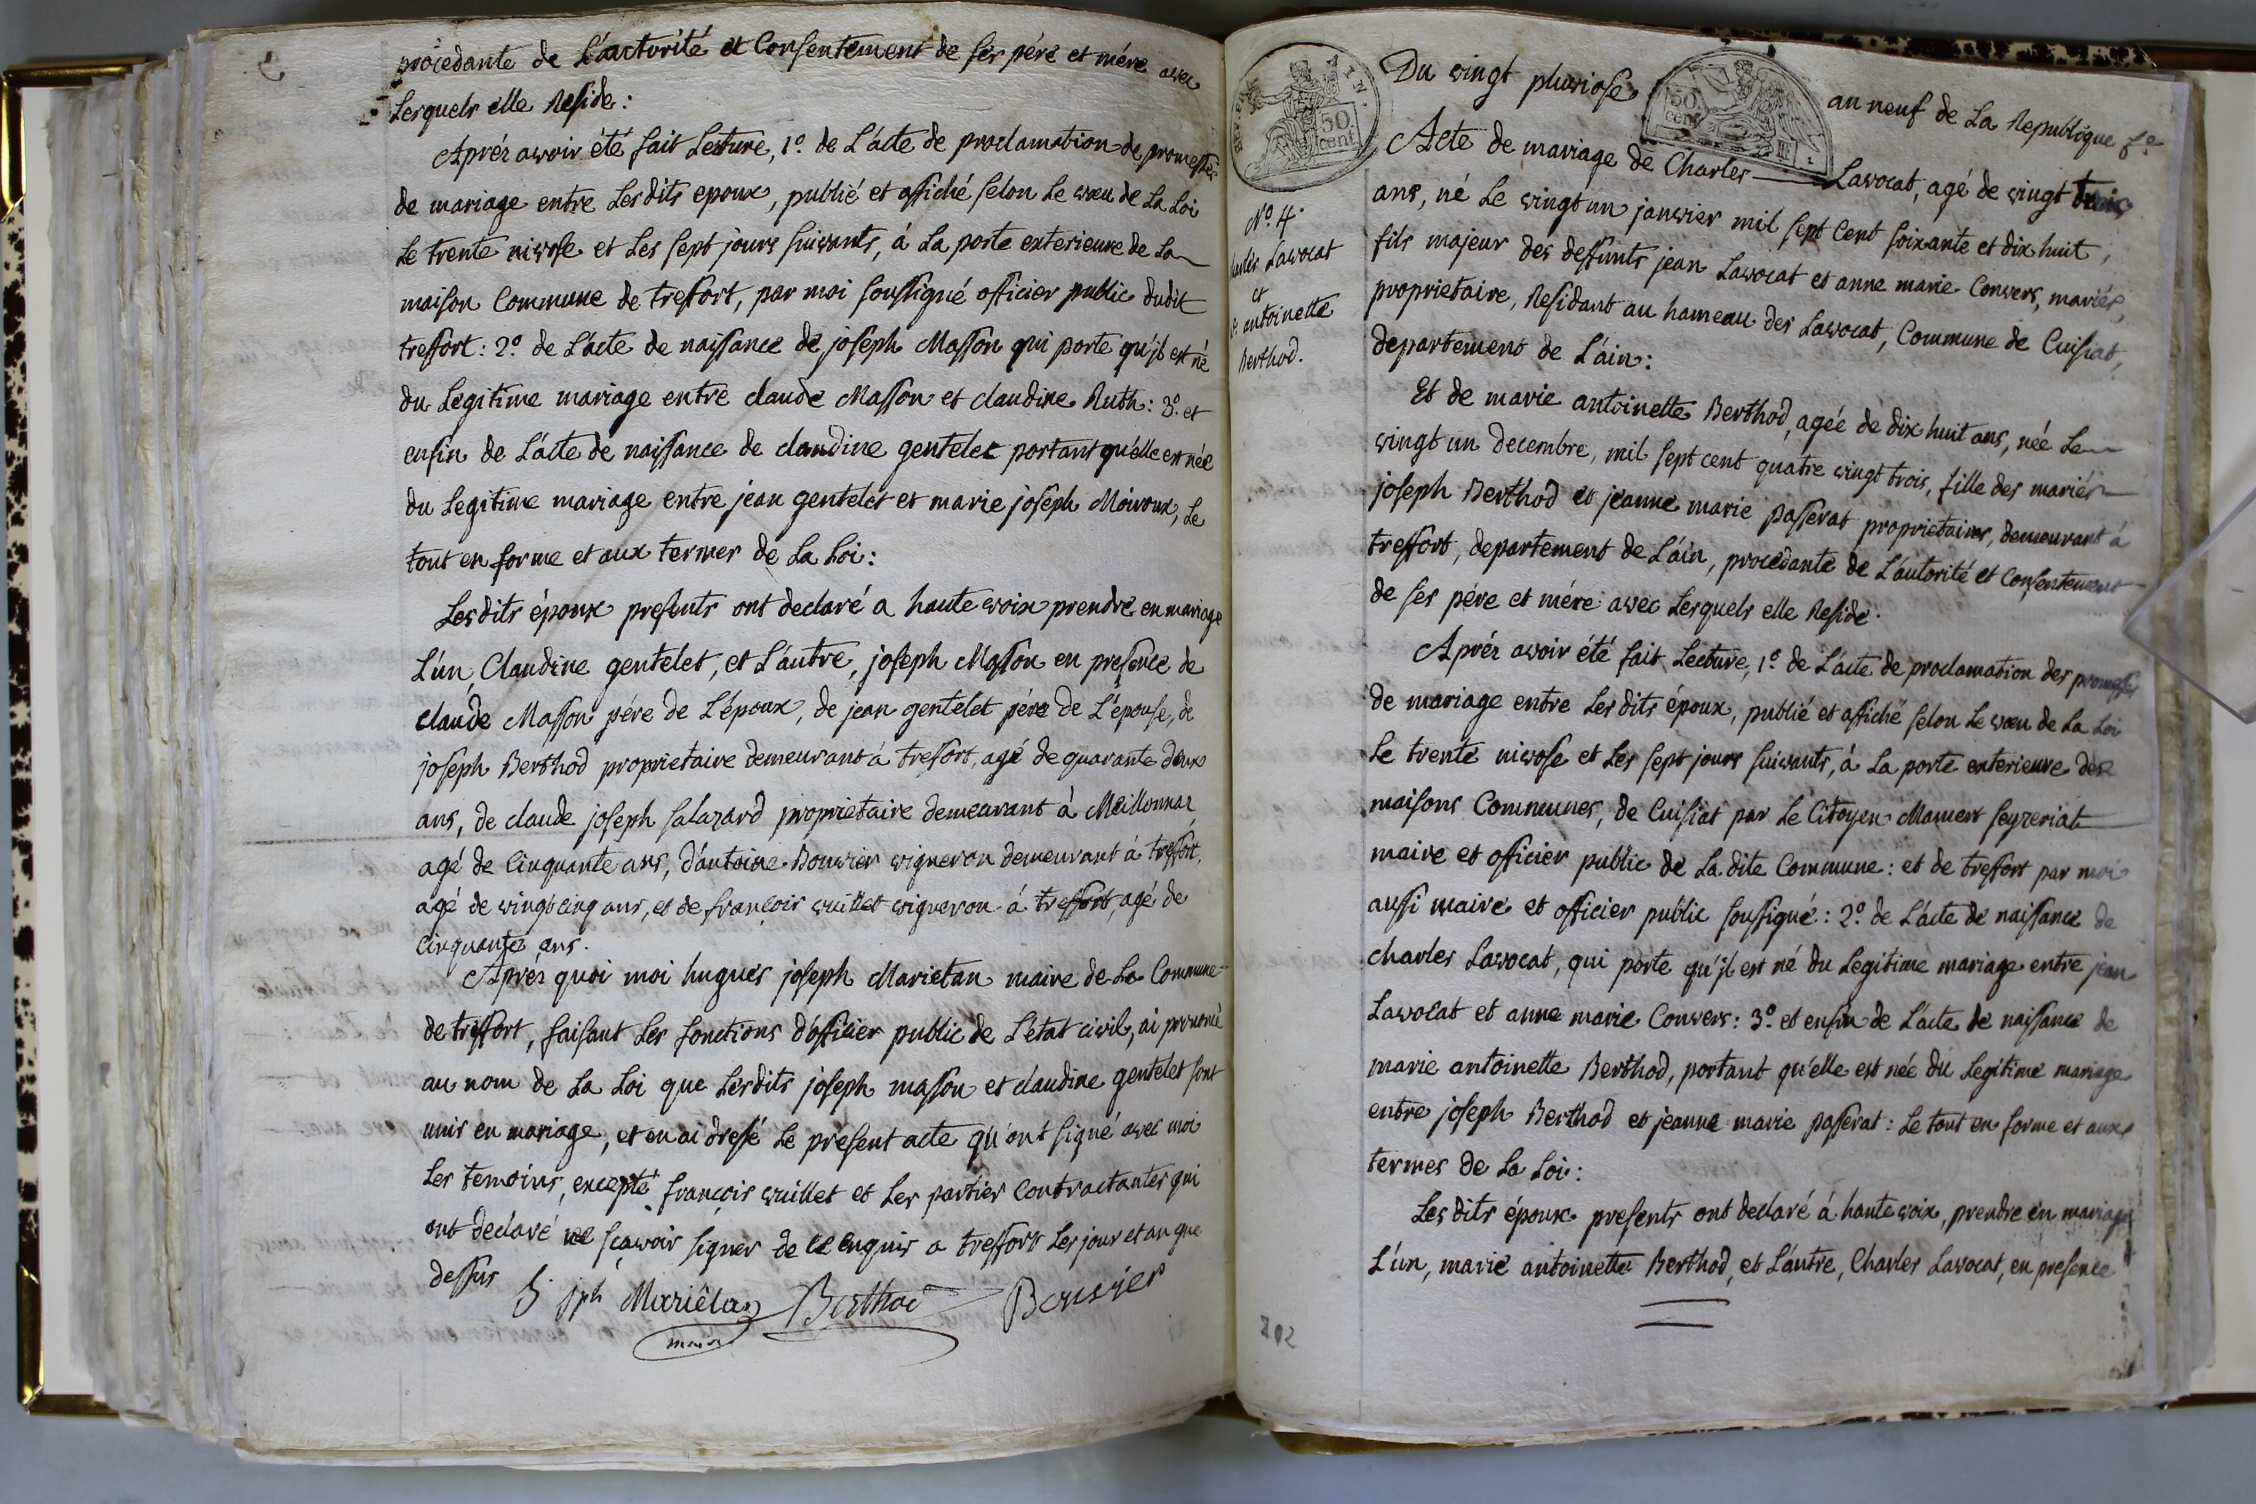 procedante de L'autorité et Consentement de ses pére et mére avec
Lesquels elle Reside:
Aprés avoir été fait Lecture, 1.º de L'acte de proclamation de promesses
de mariage entre Lesdits epoux, publié et affiché selon Le vœu de La Loi
Le trente nivose et Les sept jours suivants, á La porte exterieure de La
maison Commune de treffort, par moi soussigné officier public dudit
treffort: 2.º de L'acte de naissance de joseph Masson qui porte qu'jl est né
du Legitime mariage entre claude Masson et claudine Ruth: 3.º et
enfin de L'acte de naissance de claudine gentelet portant qu'elle est née
du Legitime mariage entre jean gentelet et marie joseph Moiroux, Le
tout en forme et aux termes de La Loi:
Lesdits époux presents ont declaré a haute voix prendre en mariage
L'un, Claudine gentelet, et L'autre, joseph Masson en presence de
claude Masson pére de L'époux, de jean gentelet pére de L'épouse, de
joseph Berthod proprietaire demeurant á treffort, agé de quarante deux
ans, de claude joseph salazard proprietaire demeurant à Meillonnaz
agé de Cinquante ans, d'antoine Bouvier vigneron demeurant á treffort,
agé de vingt cinq ans, et de françois vuillet vigneron á treffort, agé de
Cinquante ans.
Aprés quoi moi hugues joseph Marietan maire de La Commune
de treffort, faisant Les fonctions d'officier public de L'etat civil, ai prononcé
au nom de La Loi que Lesdits joseph masson et claudine gentelet sont
unis en mariage, et en ai dressé Le present acte qu'ont signé avec moi
Les temoins, excepté françois vuillet et Les parties Contractantes qui
ont declaré ne sçavoir signer de ce enquis a treffort Les jour et an que
dessus
jph Mariétan Berthod Bouvier
maire
REP. FRA. 50 cent
50 cent
Du vingt pluviose an neuf de La Republique f.se
Acte de mariage de Charles Lavocat, agé de vingt trois
ans, né Le vingt un janvier mil sept Cent soixante et dix huit,
fils majeur des deffunts jean Lavocat et anne marie Convers, mariés,
proprietaire, Residant au hameau des Lavocat, Commune de Cuisiat,
departement de L'ain:
N.º 4.
Charles Lavocat
et
antoinette
Berthod.
Et de marie antoinette Berthod, agée de dix huit ans, née Le
vingt un decembre, mil sept cent quatre vingt trois, fille des mariés
joseph Berthod et jeanne marie passerat proprietaires, demeurant á
treffort, departement de L'ain, procedante de L'autorité et Consentement
de ses pére et mére avec Lesquels elle Reside.
Aprés avoir été fait Lecture, 1.º de L'acte de proclamation des promesses
de mariage entre Lesdits époux, publié et affiché selon Le vœu de La Loi
Le trente nivose et Les sept jours suivants, á La porte exterieure des
maisons Communes, de Cuisiat par Le Citoyen Mamert seyzeriat
maire et officier public de La dite Commune: et de treffort par moi
aussi maire et officier public soussigné: 2.º de L'acte de naissance de
charles Lavocat, qui porte qu'jl est né du Legitime mariage entre jean
Lavocat et anne marie Convers: 3.º et enfin de L'acte de naissance de
marie antoinette Berthod, portant qu'elle est née du Legitime mariage
entre joseph Berthod et jeanne marie passerat: Le tout en forme et aux
termes de La Loi:
Lesdits époux presents ont declaré á haute voix, prendre en mariage
L'un, marie antoinette Berthod, et L'autre, Charles Lavocat, en presence
202